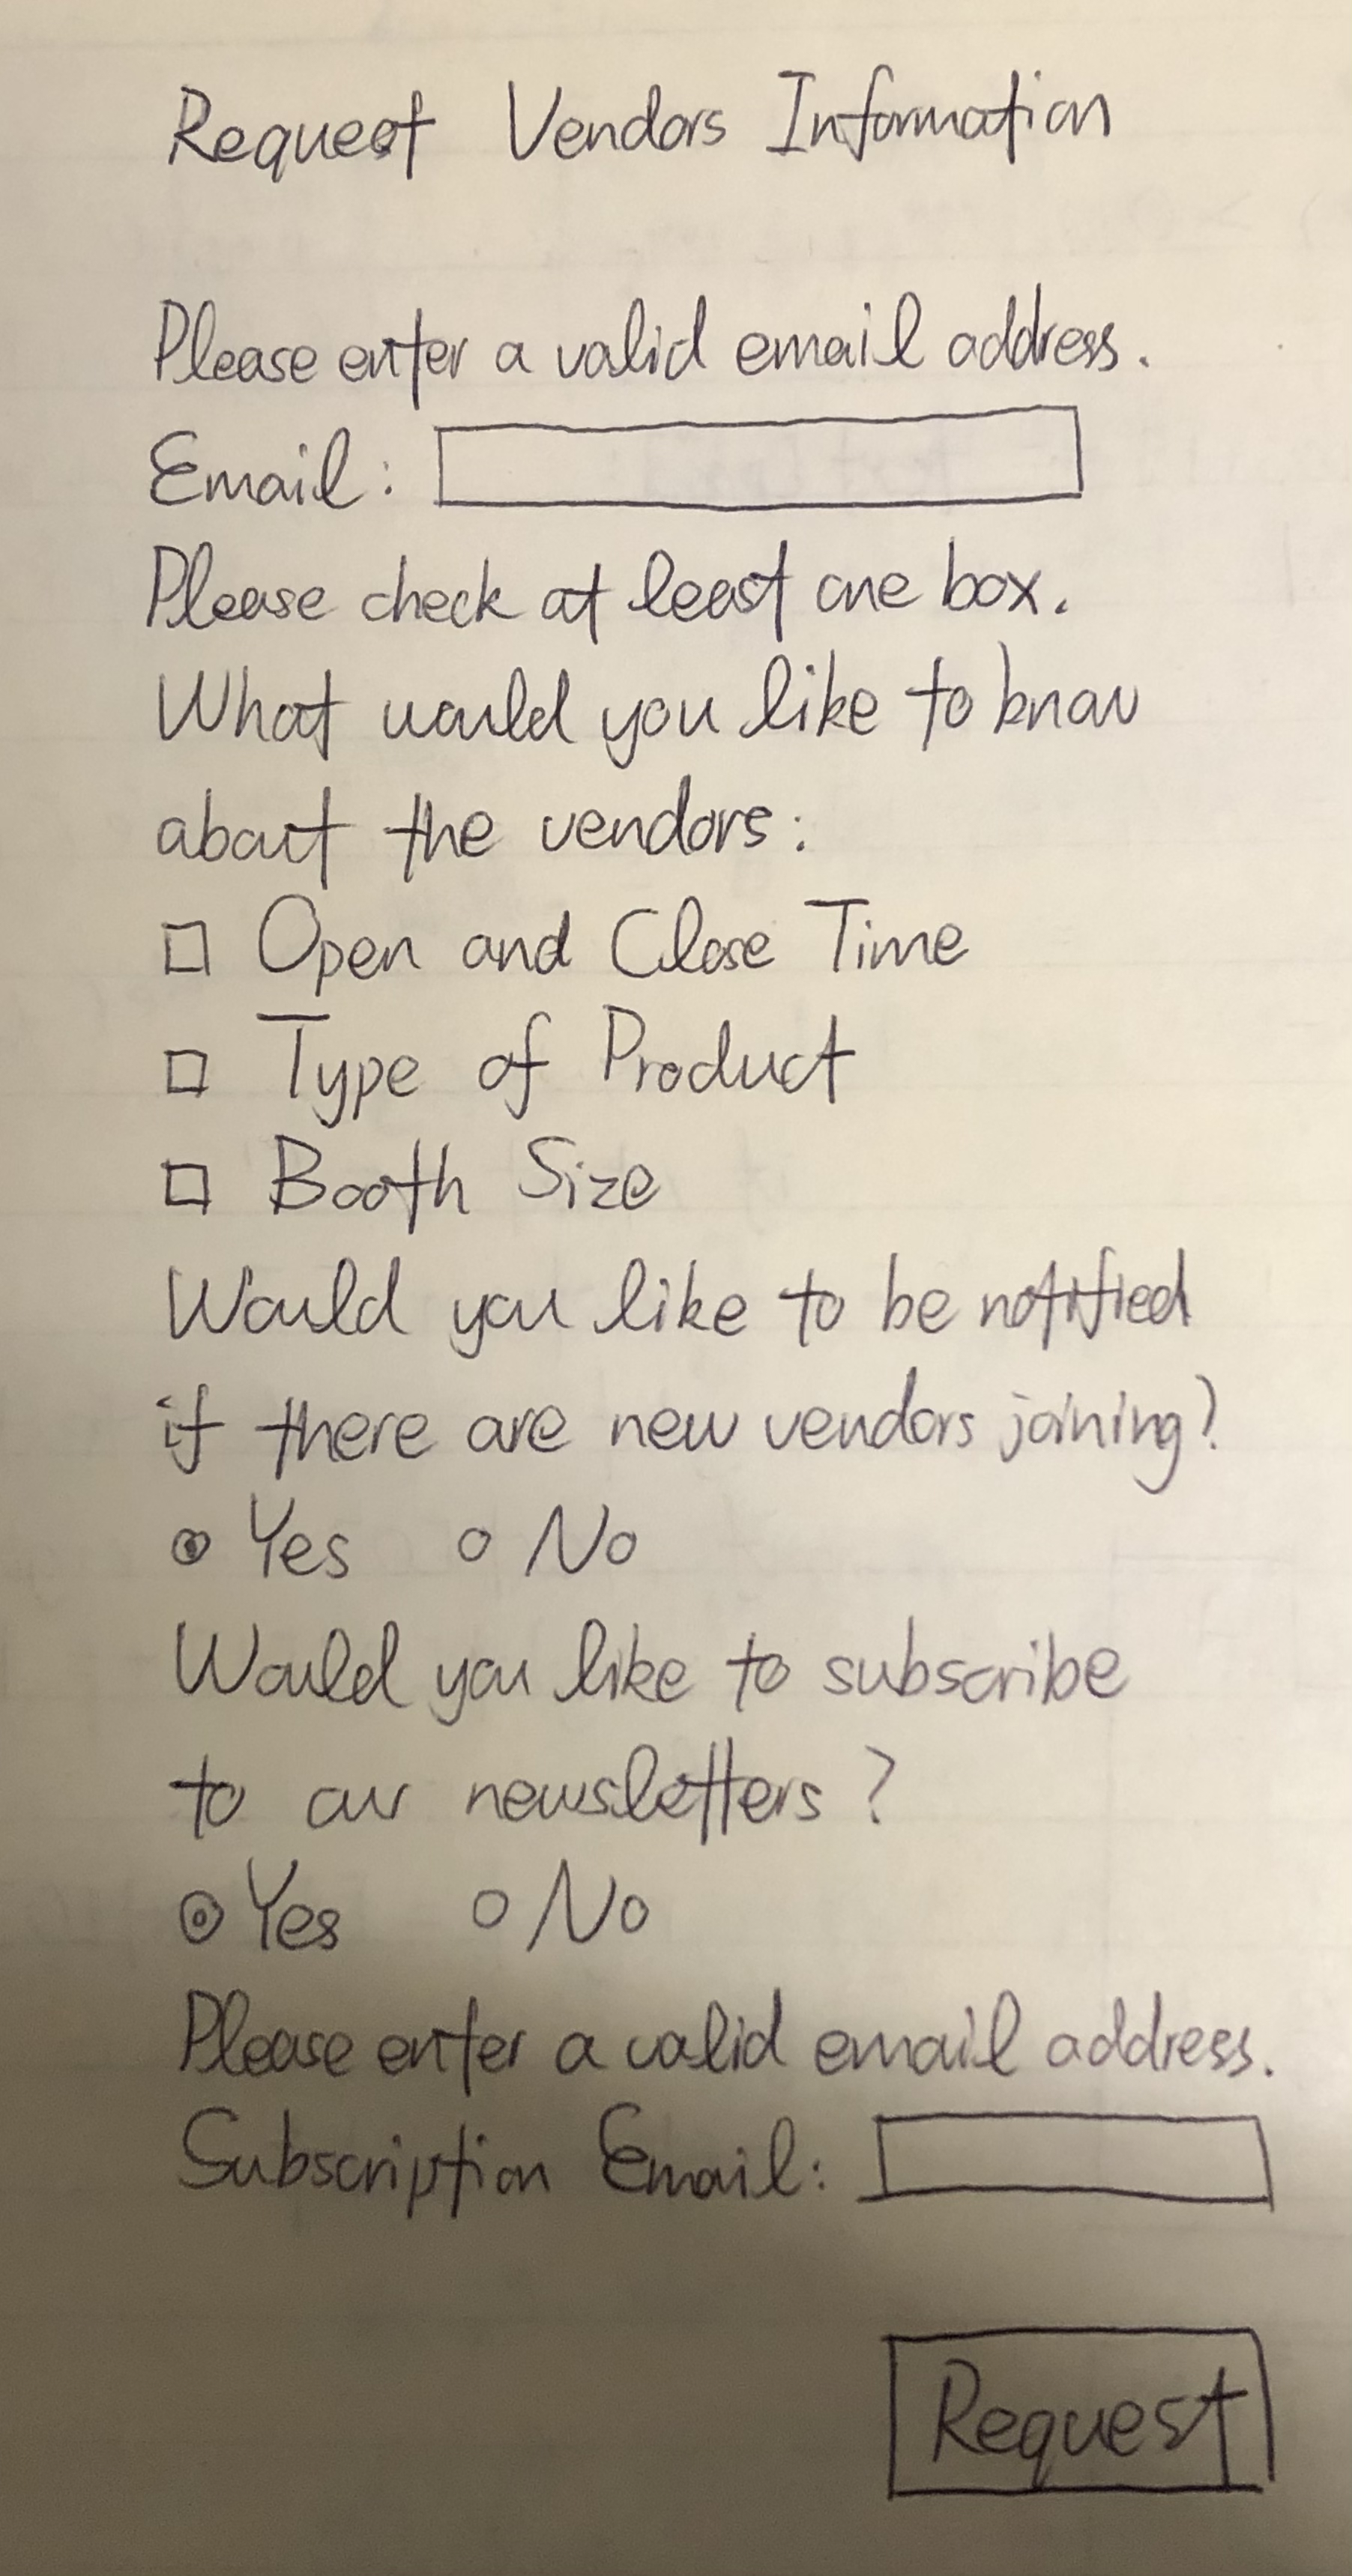 Request Vendors Information
Please enter a valid email address.
Email:
Please check at least one box.
What would you like to know
about the vendors:
Open and Close Time
Type of Product
Booth Size
Would you like to be notified
if there are new vendors joining?
Yes No
Would you like to subscribe
to our newsletters?
Yes No
Please enter a valid email address.
Subscription Email:
Request